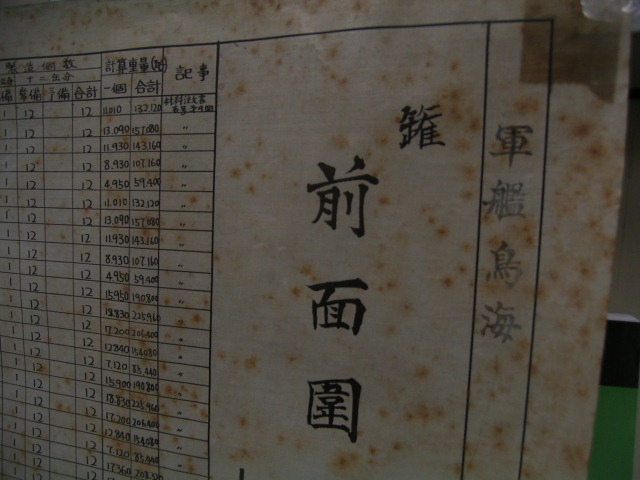 軍艦鳥海
罐
前面圍
造個數 計算重量 記事
常備 予備 合計 一個 合計
1 12 12 11.010 132.120
1 12 12 13.090 157.080 〃
1 12 12 11.930 143.160 〃
1 12 12 8.930 107.160 〃
1 12 12 4.950 59.400 〃
1 12 12 11.010 132.120 〃
1 12 12 13.090 157.080 〃
1 12 12 11.930 143.160 〃
1 12 12 8.930 107.160 〃
1 12 12 4.950 59.400 〃
1 12 12 15.950 190.800 〃
1 12 12 18.830 225.960 〃
1 12 12 17.200 206.400 〃
1 12 12 12.840 154.080 〃
1 12 12 7.120 85.440 〃
1 12 12 15.900 190.800 〃
1 12 12 18.830 225.960 〃
1 12 12 17.200 206.400 〃
1 12 12 12.840 154.080 〃
1 12 12 7.120 85.440 〃
12 12 17.360 208.320 〃